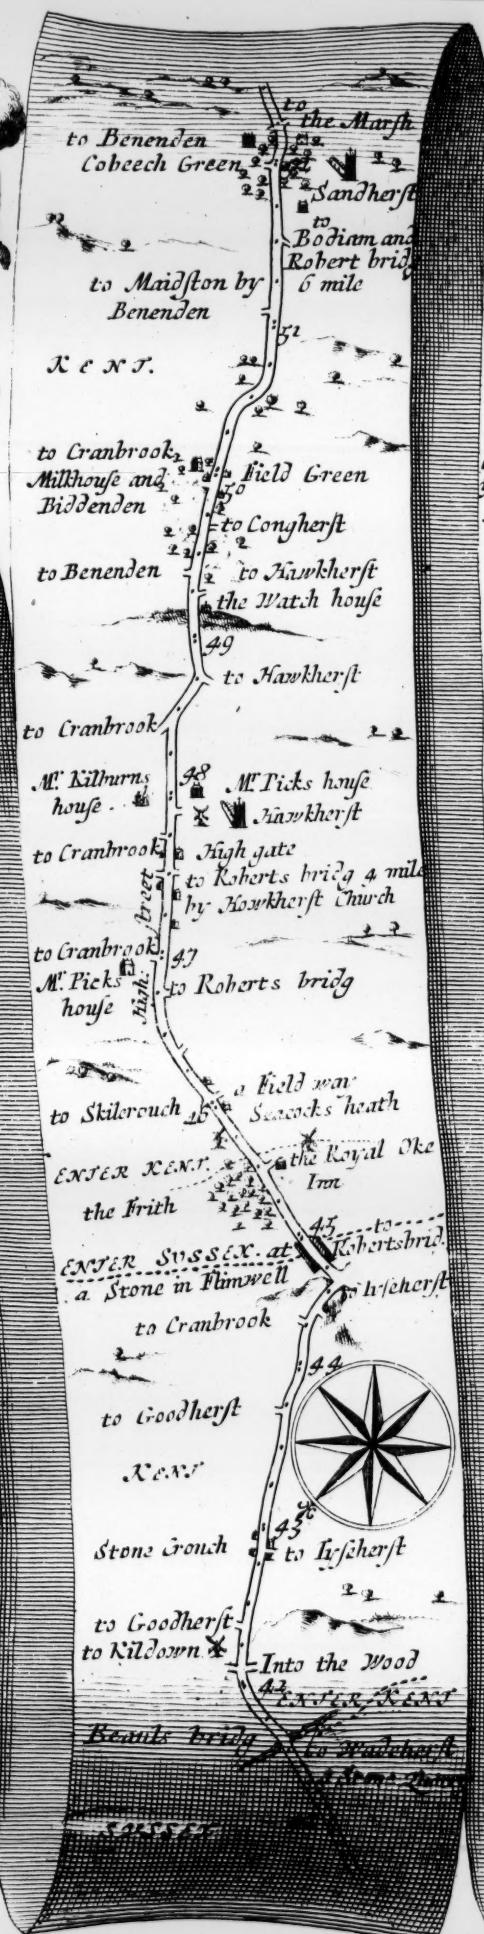 to
the Marsh
to Benenden
Cobeech Green
52
Sandherst
to
Bodiam and
Robert bridg
6 mile
to Maidston by
Benenden
51
KENT.
to Cranbrook
Milkhouse and
Biddenden
Field Green
50
to Congherst
to Benenden
to Hawkherst
the Watch house
49
to Hawkherst
to Cranbrook
48
Mr. Kilburns
house
Mr. Picks house
Hawkherst
to Cranbrook
High gate
to Roberts bridg 4 mile
by Howkherst Church
High street
to Cranbrook
47
Mr. Picks
house
to Roberts bridg
a Field way
to Skilcrouch
46
Seacocks heath
ENTER KENT.
the Royal Oke
Inn
the Frith
45
to
Robertsbrid.
ENTER SUSSEX. at
a Stone in Flimwell
to Cranbrook
44
to Goodherst
KENT
43
Stone Crouch
to Tyseherst
to Goodherst
to Kildown
Into the Wood
42
ENTER KENT
Beauls bridg
to Wadeherst
a Stone Quarry
SUSSEX